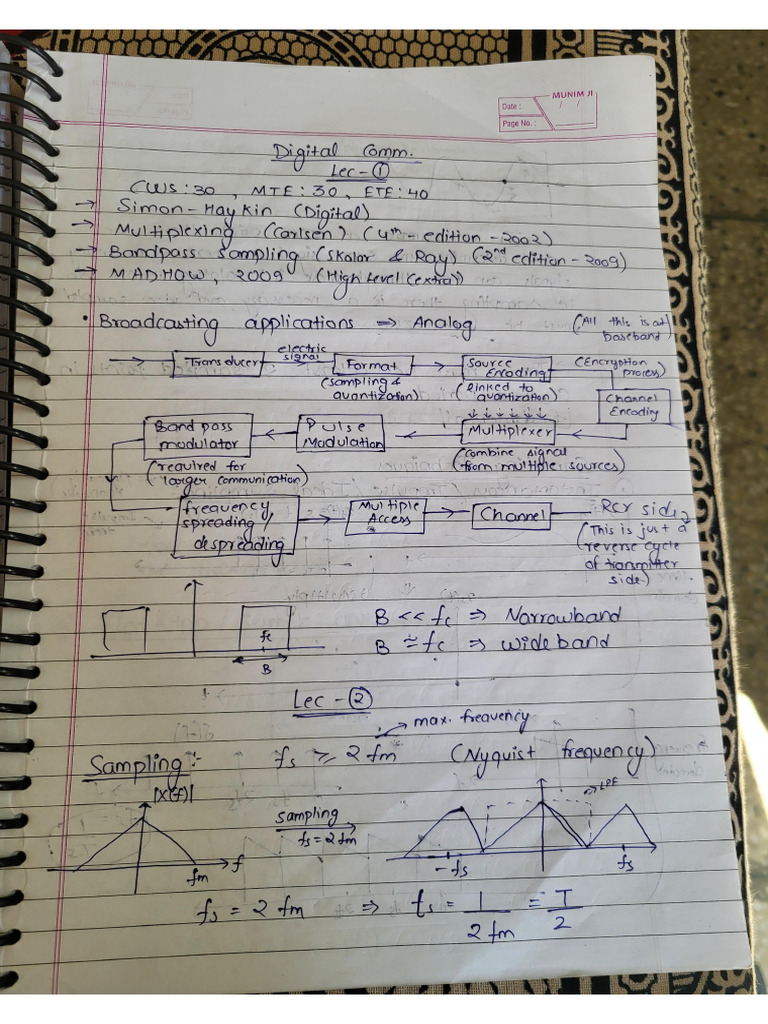 MUNIM JI
Date : / /
Page No. :
Digital Comm.
Lec - ①
CWS : 30 , MTE : 30 , ETE : 40
→ Simon - Haykin (Digital)
→ Multiplexing (Carlsen) (4th - edition - 2002)
→ Bandpass Sampling (Skalar & Ray) (2nd edition - 2009)
→ MADHOW, 2009 (High Level (extra))
• Broadcasting applications ⇒ Analog
(All this is at baseband)
Transducer
electric signal
Format
(sampling & quantization)
Source Encoding
(linked to quantization)
(Encryption process)
Channel Encoding
Multiplexer
(combine signal from multiple sources)
Pulse Modulation
Band pass modulator
(required for larger communication)
frequency spreading / despreading
Multiple Access
Channel
Rcr side
(This is just a reverse cycle of transmitter side)
fc
B
B << fc ⇒ Narrowband
B ≈ fc ⇒ wide band
Lec - ②
→ max. frequency
Sampling :- fs ⩾ 2 fm (Nyquist frequency)
|X(f)|
fm
f
sampling
fs = 2 fm
LPF
- fs
fs
fs = 2 fm ⇒ ts = 1 / 2 fm = T / 2